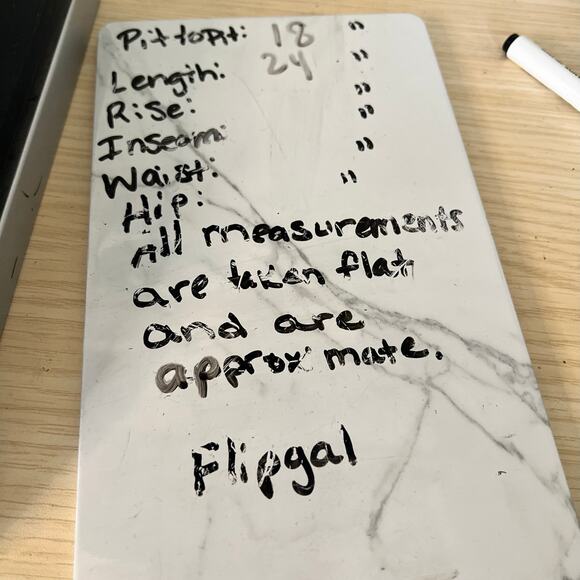 Pit to Pit: 18 "
Length: 24 "
Rise: "
Inseam: "
Waist: "
Hip: "
All measurements
are taken flat
and are
approximate.
Flipgal